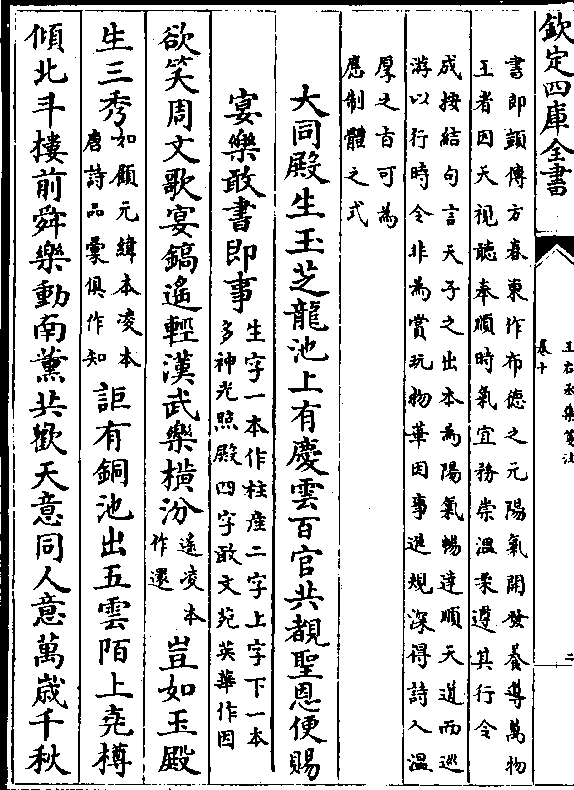 欽定四庫全書
王右丞集箋注
卷十
二
書即顗傳方春東作布德之元陽氣開發養導萬物
王者因天視聽奉順時氣宜務崇溫柔遵其行令
成按結句言天子之出本為陽氣暢達順天道而巡
游以行時令非為賞玩物華因事進規深得詩人溫
厚之旨可為
應制體之式
大同殿生玉芝龍池上有慶雲百官共覩聖恩便賜
宴樂敢書即事
生字一本作柱産二字上字下一本
多神光照殿四字敢文苑英華作因
欲笑周文歌宴鎬遙輕漢武樂橫汾
遙凌本
作還
豈如玉殿
生三秀
如顧元緯本凌本
唐詩品彙俱作知
詎有銅池出五雲陌上堯樽
傾北斗樓前舜樂動南薰共歡天意同人意萬歲千秋